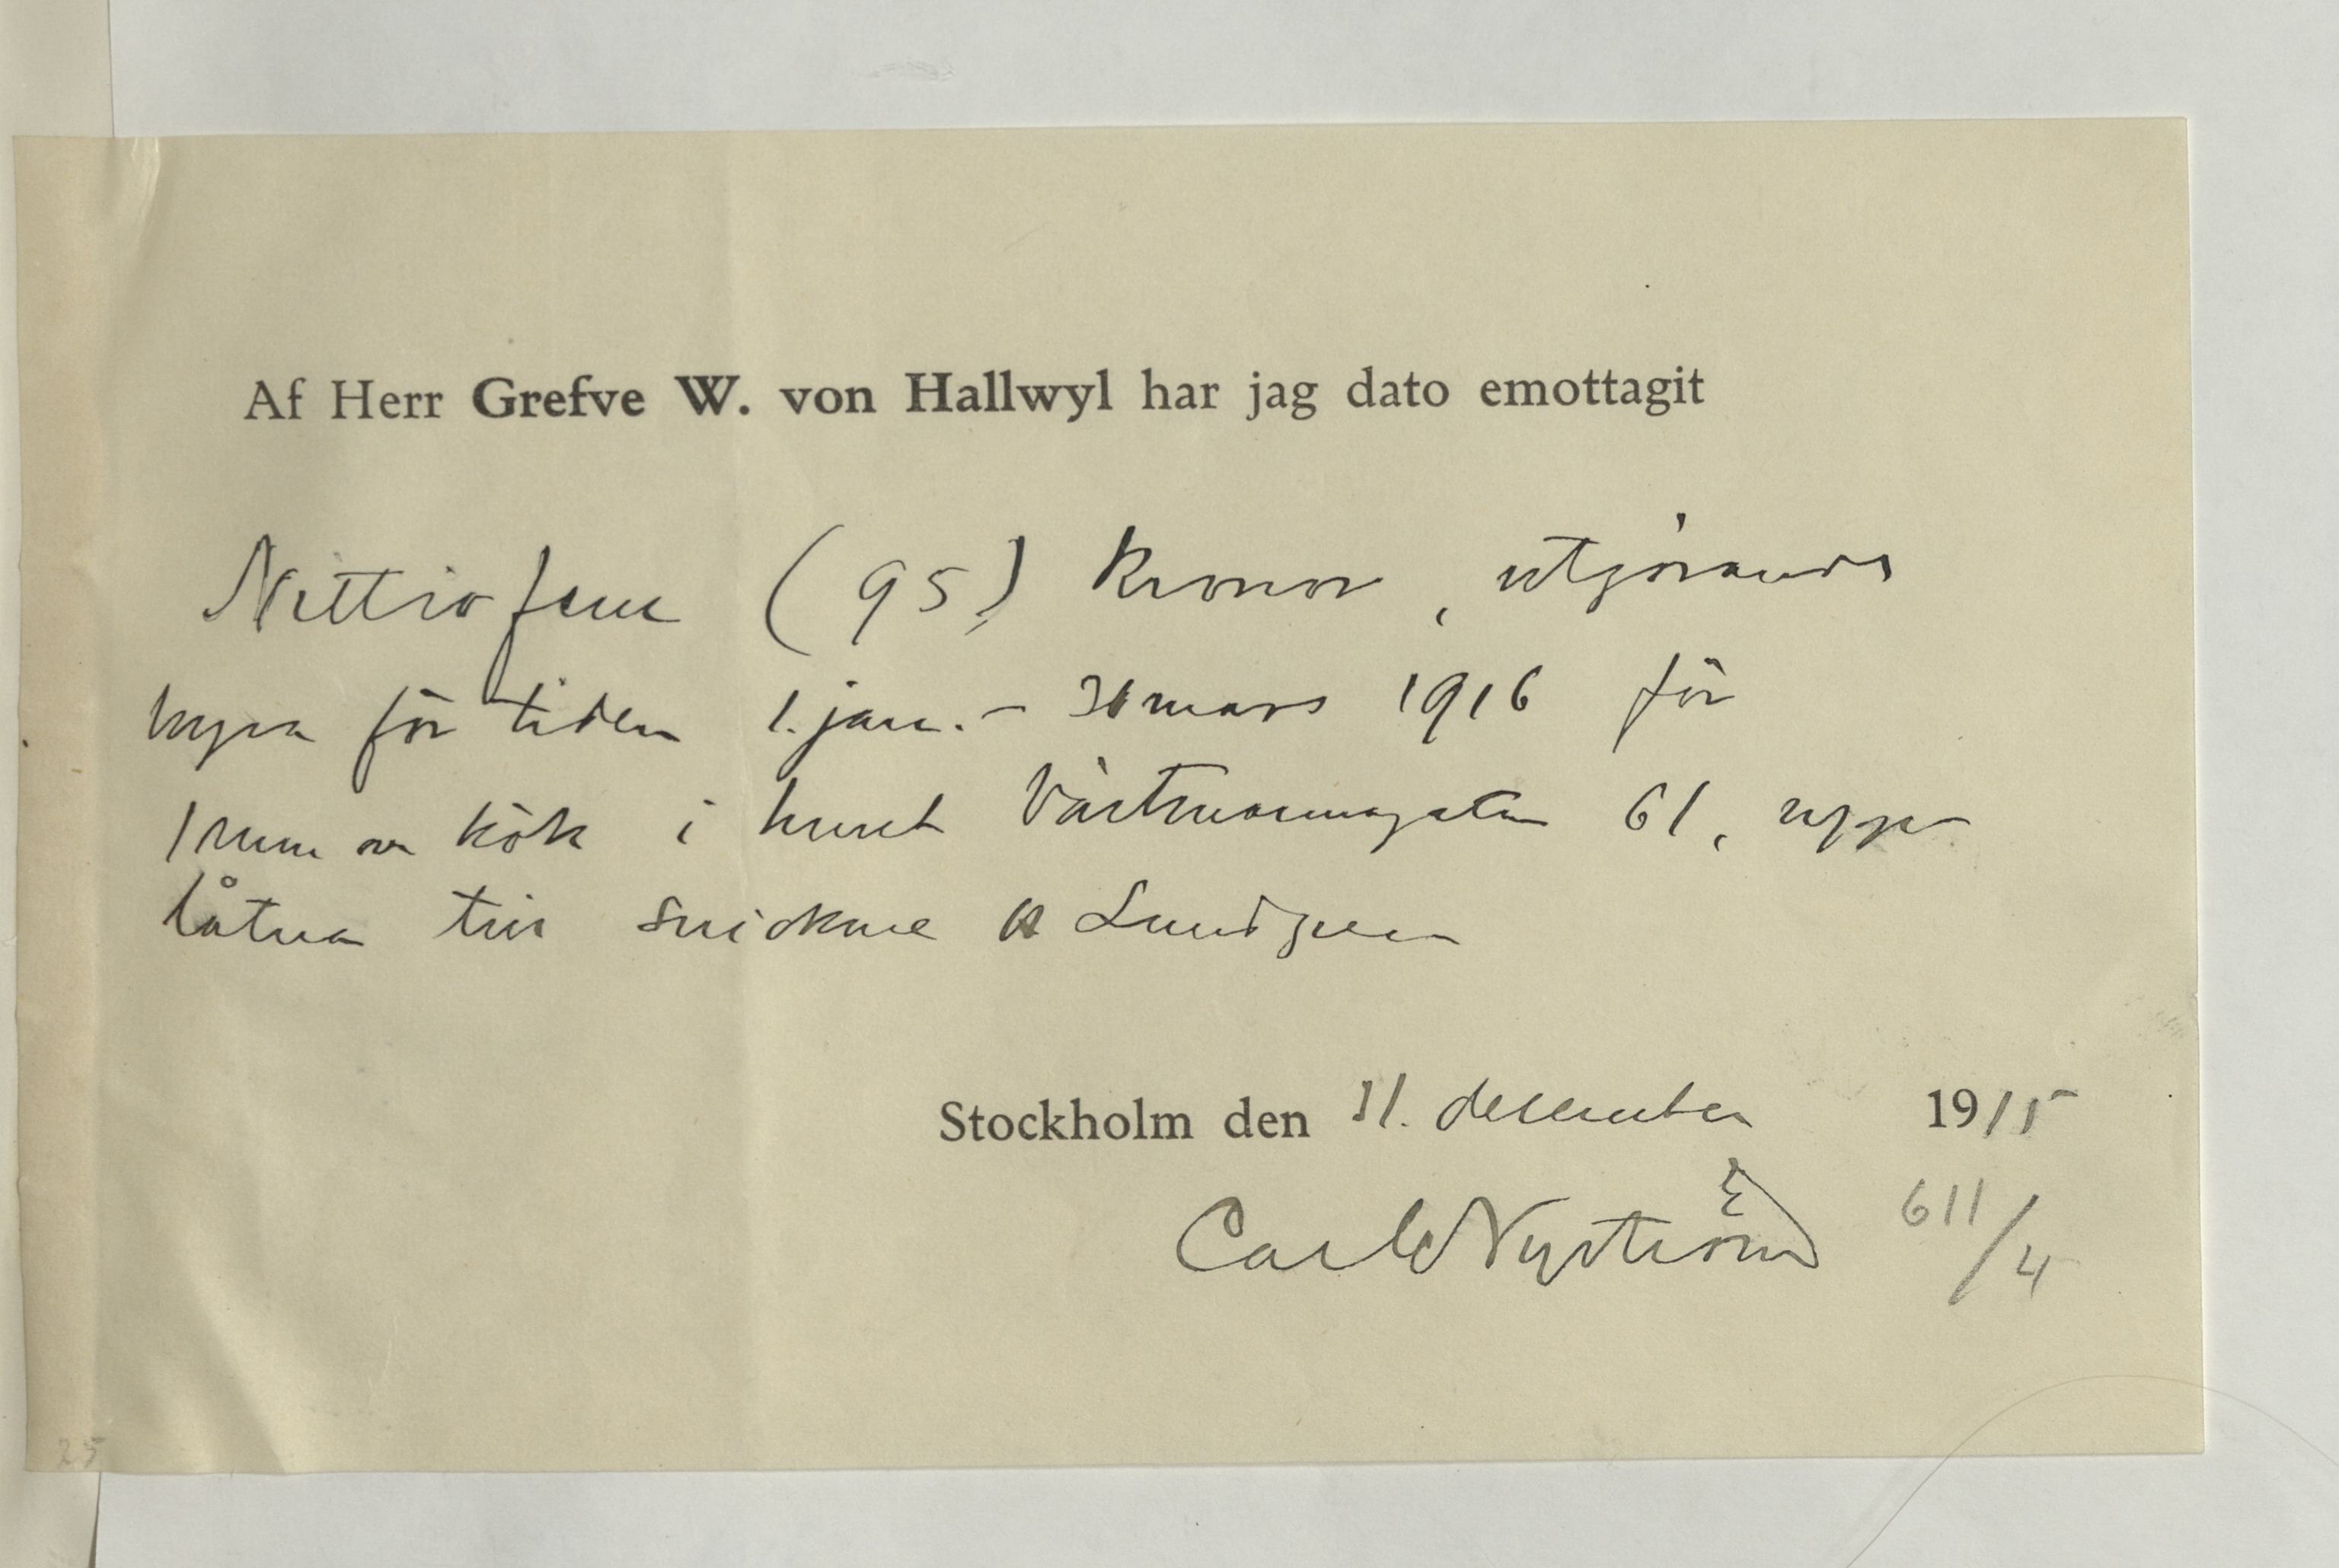 Af Herr Grefve W. von Hallwyl har jag dato emottagit
Nittiofem (95) Kronor, utgörande
hyra för tiden 1. jan. - 31 mars 1916 för
1 rum o kök i huset Västmannagatan 61, upp-
låtna till snickare Lundgren
Stockholm den 31. december 1915
Carl Nyström
611/4
25